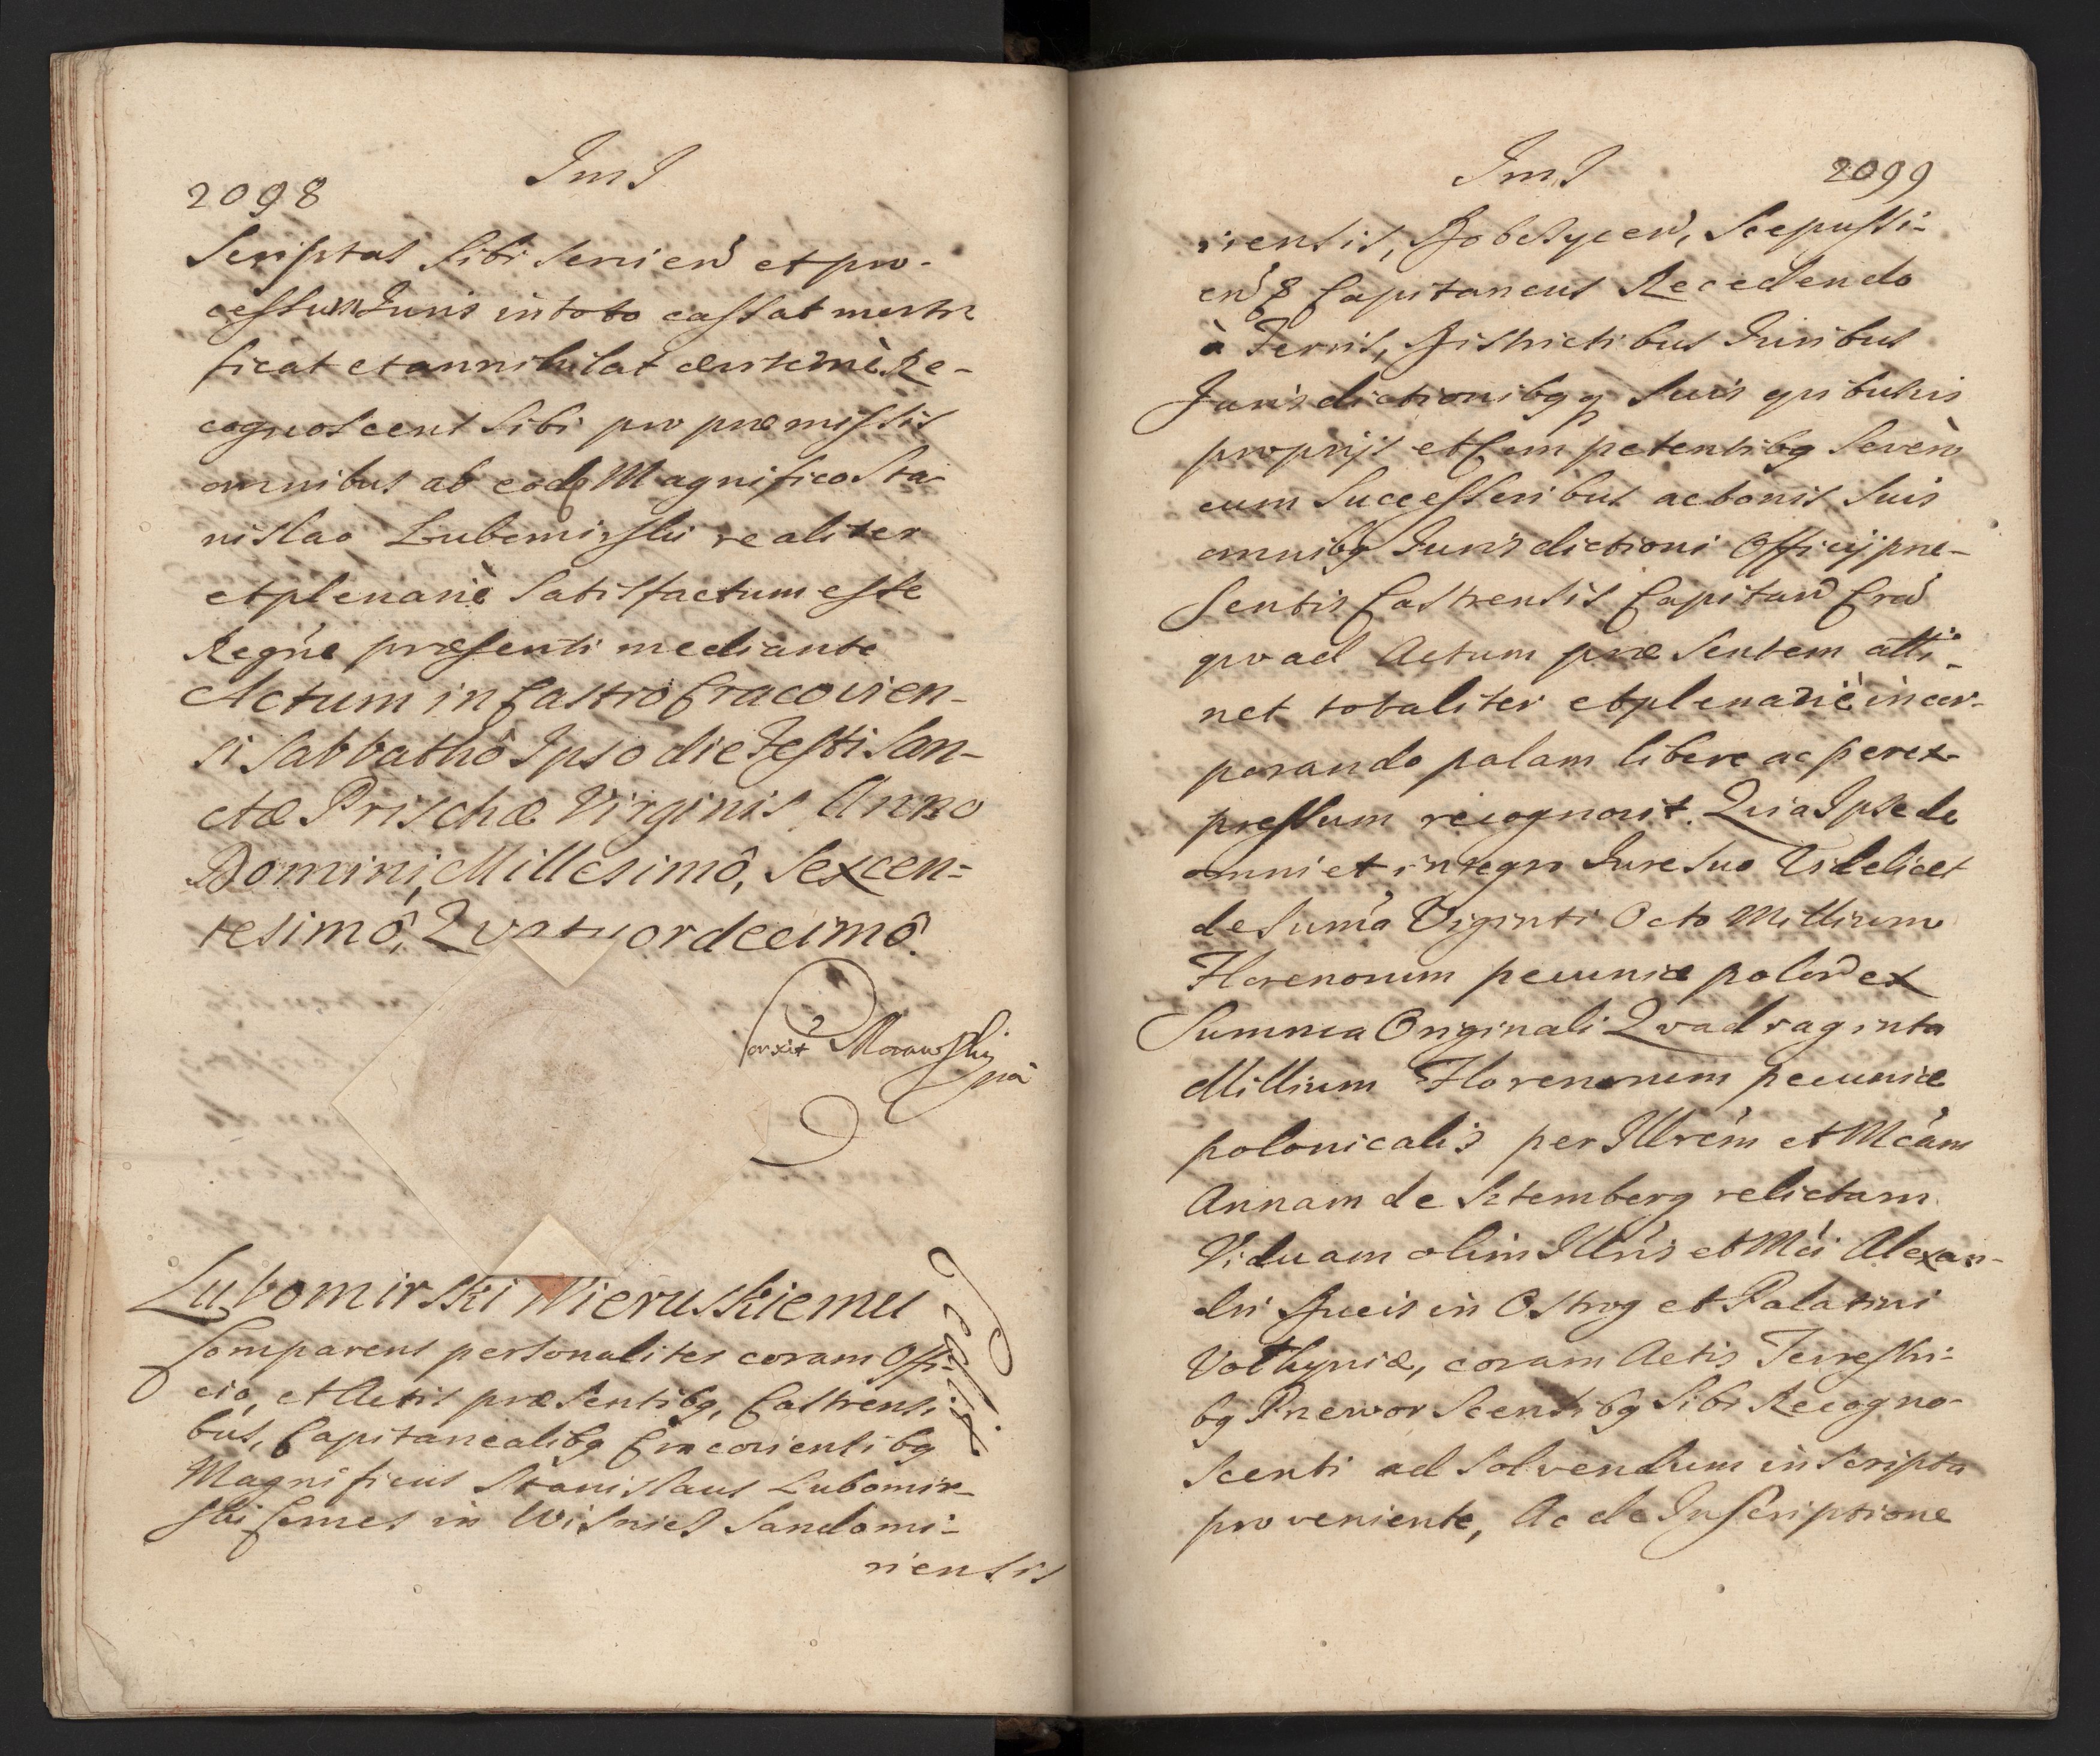 2098
JmJ
Scriptas sibi servień et pro-
cessum Juris in toto cassat morti
ficat et annihilat Re-
cognoscens sibi pro præmissis
omnibus ab eodę Magnifico Sta
nislao Lubomirski realiter
et plenariè satisfactum esse
Regńe præsenti mediante
Actum in Castro Cracovien-
si Sabbathô Ipso die Festi San-
ctæ Prischæ Virginis Anno
Domini, Millesimô, Sexcen=
tesimô, Qvatuordecimô.
Morawski
Lubomirski Wieruskiemu
Comparens personaliter coram Offi
cio, et Actis præsentibg, Castrensi
bus, Capitanealibg Cracoviensibg
Magnificus Stanislaus Lubomir-
ski Comes in Wisnicz Sandomi-
riensis
JmJ
2099
riensis, Dobczyceń, Scepussi-
eń g Capitaneus Recedendo
à Terris, Districtibus Juribus
Jurisdictionibg g suis qvibusvis
proprijs et Competentibg Seveń
cum Successoribus ac bonis suis
omnibg Jurisdictioni Officij præ-
sentis Castrensis Capitań Crać
qvo ad Actum præsentem atti-
net totaliter et plenariè incor-
porando palam libere ac per ex-
pressum recognovit. Qvia Ipse de
omni et integro Jure suo Videlicet
de Suma Viginti Octo Millium
Florenorum pecuniæ poloń ex
Summa Originali Qvadraginta
Millium Florenorum pecuniæ
polonicalis per Illrem et Mcam
Annam de Sztemberg relictam
Viduam olim Illris et Mci Alexan-
dri Ducis in Ostrog et Palatini
Volhyniæ, coram Actis Terrestri-
bg Przeworscensibg sibi Recogno-
scenti ad solvendum inscripta
proveniente, Ac de Inscriptione